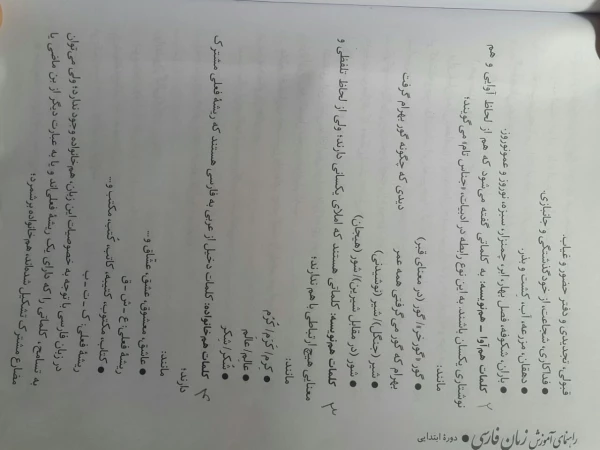 راهنمای آموزش زبان فارسی ● دورهٔ ابتدایی
قبولی، تجدیدی و دفتر حضور و غیاب.
● فداکاری، شجاعت، از خودگذشتگی و جانبازی.
● دهقان، مزرعه، آب، کشت و بذر.
● باران، شکوفه، فصل بهار، ابر، چمنزار، سبزه، نوروز و عمونوروز.
۲ کلمات هم‌آوا ـ هم‌نویسه: به کلماتی گفته می‌شود که هم از لحاظ آوایی و هم
نوشتاری یکسان باشند. به این نوع رابطه در ادبیات، «جناس تام» می‌گویند؛
مانند:
● گور «گورخر»/ گور (در معنای قبر)
بهرام که گور می‌گرفتی همه عمر دیدی که چگونه گور بهرام گرفت
● شیر (جنگل)/ شیر (نوشیدنی)
● شور (در مقابل شیرین)/ شور (هیجان)
۳ کلمات هم‌نویسه: کلماتی هستند که املای یکسانی دارند؛ ولی از لحاظ تلفظی و
معنایی هیچ ارتباطی با هم ندارند؛
مانند:
● کِرم/ کَرَم/ کِرِم
● عالِم/ عالَم
● شُکر/ شِکَر
۴ کلمات هم‌خانواده: کلمات دخیل از عربی به فارسی هستند که ریشهٔ فعلی مشترک
دارند؛
مانند:
● عاشق، معشوق، عشق، عشّاق و...
ریشهٔ فعلی: ع ـ ش ـ ق
● کتاب، مکتوب، کتیبه، کاتب، کُتب، مکتب و...
ریشهٔ فعلی: ک ـ ت ـ ب
در زبان فارسی با توجه به خصوصیات این زبان، هم‌خانواده وجود ندارد؛ ولی می‌توان
به تسامح، کلماتی را که دارای یک ریشهٔ فعلی‌اند و یا به عبارت دیگر از بن ماضی یا
مضارع مشترک تشکیل شده‌اند، هم‌خانواده برشمرد؛